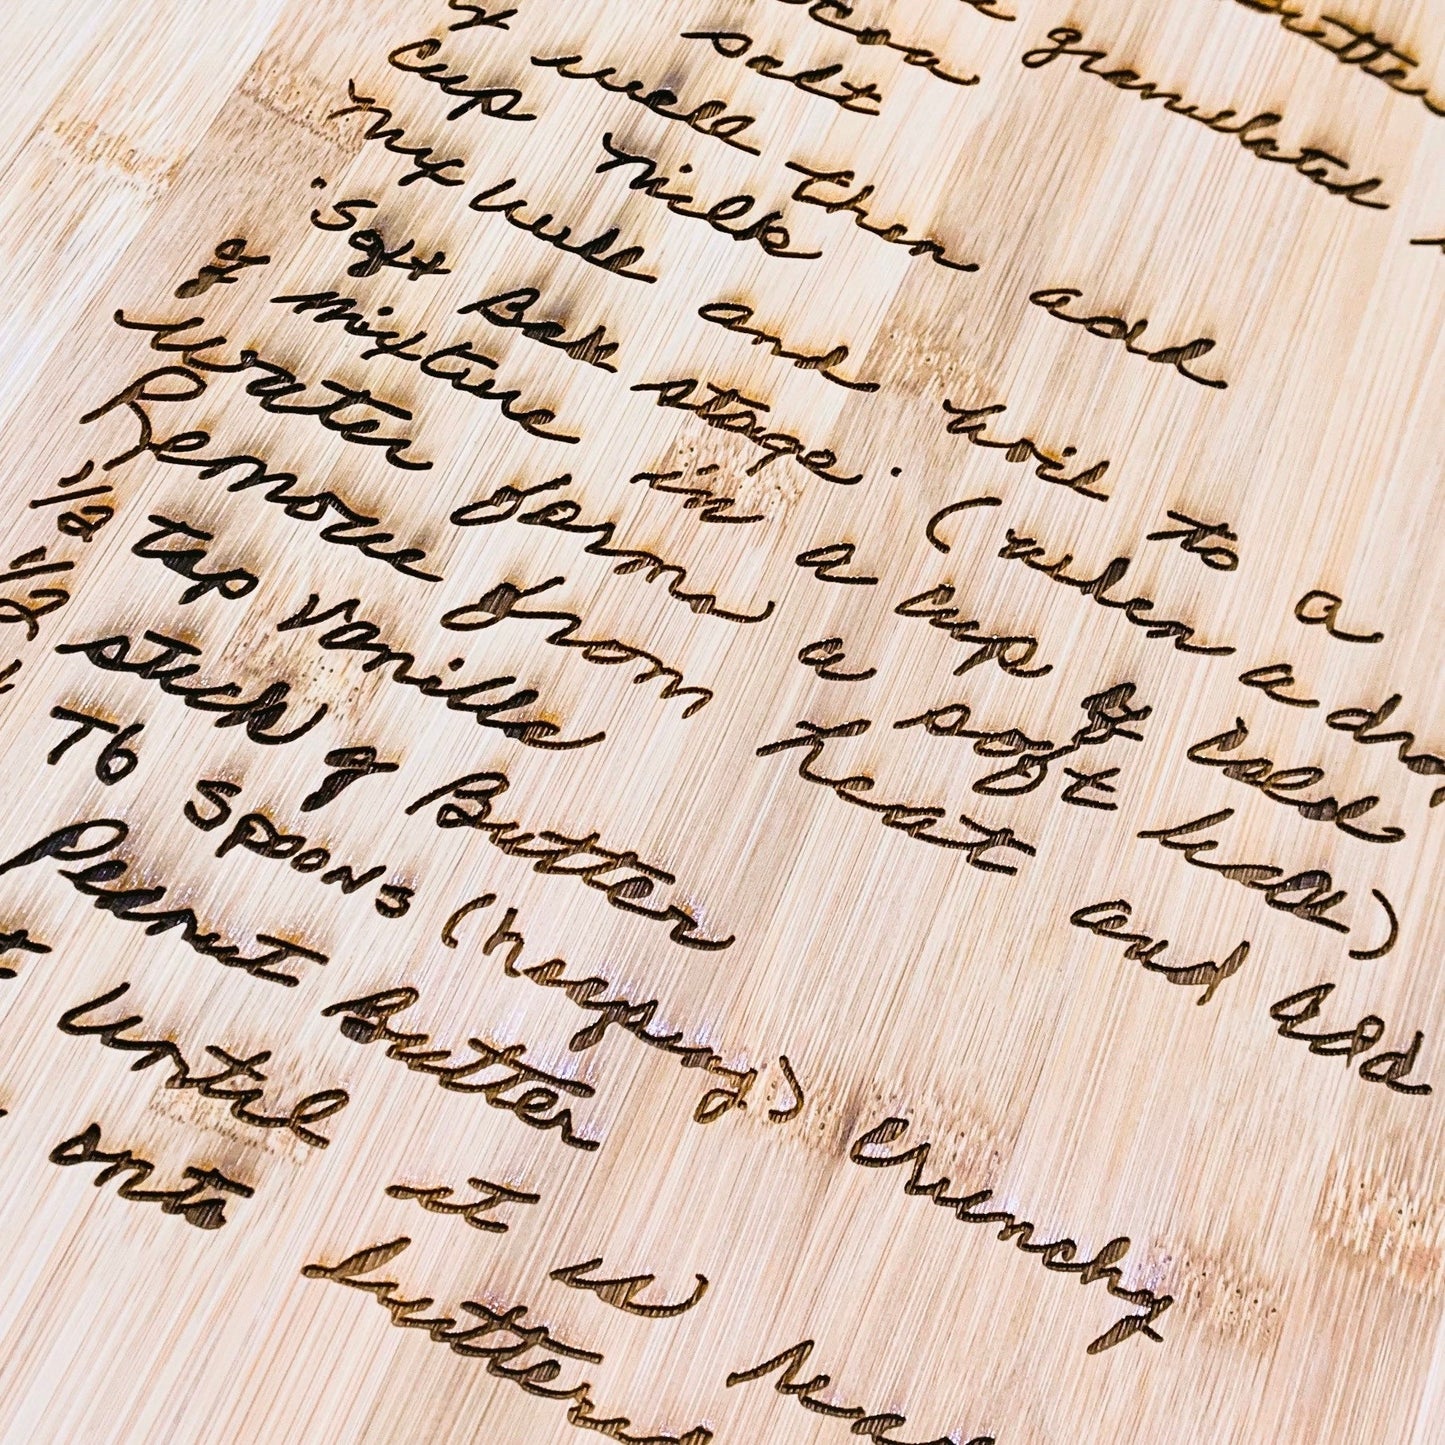 butter
granulated
cocoa
salt
x well then add
cup milk
mix well and boil to a
"Soft Ball stage." (when a drop
of mixture in a cup of cold
water forms a soft ball)
Remove from heat and add
1/2 tsp vanilla
1/2 stick of Butter
Tb spoons (heaping) crunchy
Peanut Butter
until it is
onto buttered